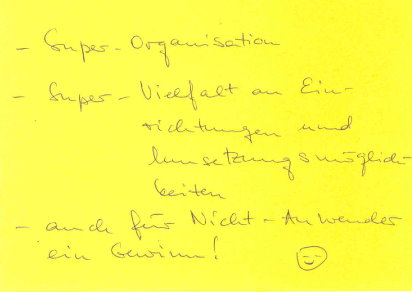 - Super-Organisation
- Super-Vielfalt an Ein-
richtungen und
Umsetzungsmöglich-
keiten
- auch für Nicht-Anwender
ein Gewinn!